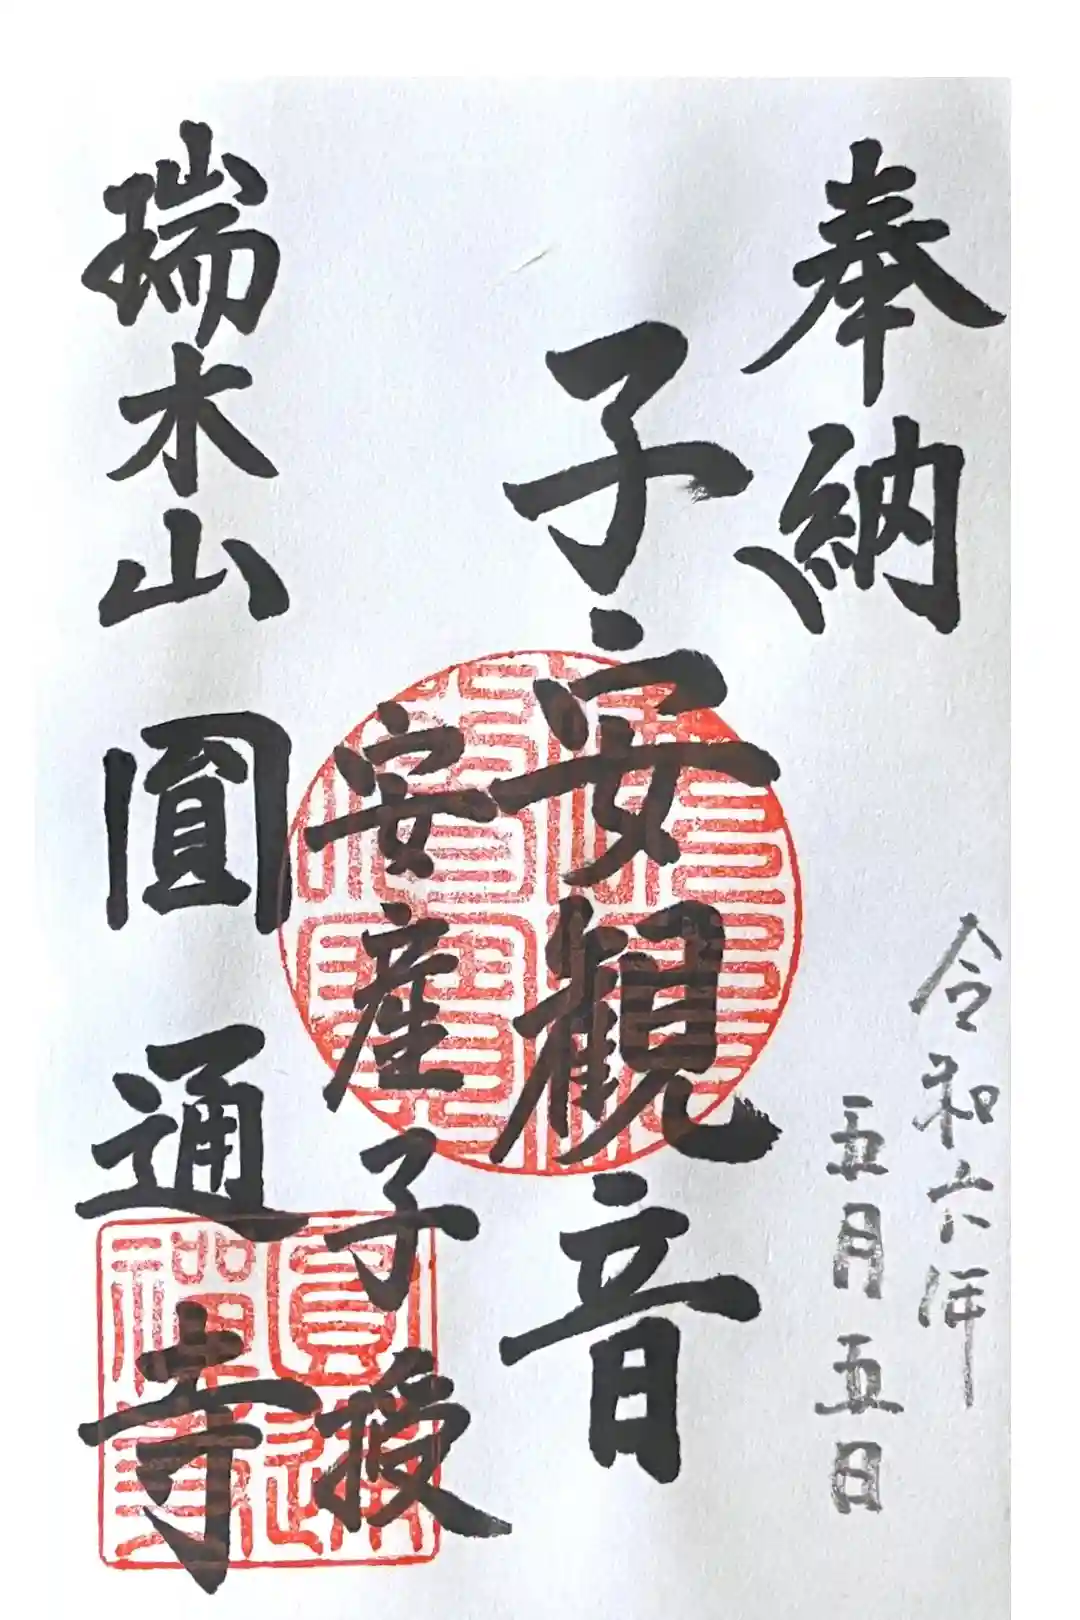 奉納
令和六年
五月五日
子安観音
安産子授
瑞木山圓通寺
圓通禅寺